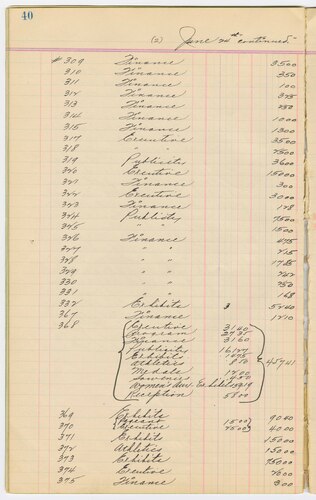 40
(2) June 24th continued
# 309 Finance 3500
310 Finance 350
311 Finance 100
312 Finance 375
313 Finance 250
314 Finance 1000
315 Finance 1300
317 Executive 3500
318 " 2500
319 Publicity 3600
320 Executive 15000
321 Finance 300
322 Executive 3000
323 Finance 128
324 Publicity 7500
325 " " 1500
326 Finance 475
327 " " 215
328 " "
329 " "
330 " " 250
331 " " 168
332 Exhibits 5240
367 Finance 1210
368 Executive 3140
Program
Finance 3160
Publicity
Exhibits
Athletics
Medals 1200
Souvenirs
Women's Aux Exhibits
Reception 5800
45741
369 Exhibits 9040
370 Pageant 1500
Executive 2500 4000
371 Exhibits 15000
372 Athletics 15000
373 Exhibits 75000
374 Executive 7600
375 Finance 300